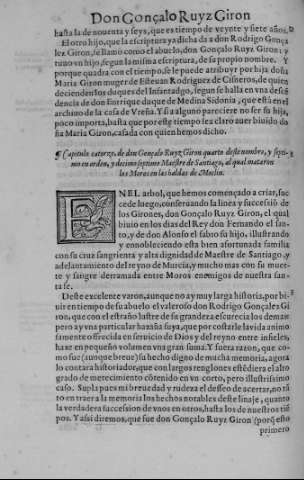 Don Gonçalo Ruyz Giron
hasta la de nouenta y seys, que es tiempo de veynte y siete años.
El otro hijo, que la escriptura ya dicha a don Rodrigo Gonça
lez Giron, se llamò como el abuelo, don Gonçalo Ruyz Giron: y
tuuo vn hijo, segun la misma escriptura, de su propio nombre. Y
porque quadra con el tiempo, se le puede atribuyr por hija doña
Maria Giron muger de Esteuan Rodriguez de Cisneros, de quien
decienden los duques del Infantadgo, segun se halla en vna desce
dencia de don Enrrique duque de Medina Sidonia, que està en el
archiuo de la casa de Vreña. Y si a alguno pareciere no ser su hija,
poco importa, basta que por este tiempo sea claro auer biuido do
ña Maria Giron, casada con quien hemos dicho.
¶ Capitulo catorze, de don Gonçalo Ruyz Giron quarto deste nombre, y septi
mo en orden, y decimo septimo Maestre de Santiago, al qual mataron
los Moros en las haldas de Moclin.
EN EL arbol, que hemos començado a criar, suc
cede luego, conseruando la linea y successiō de
los Girones, don Gonçalo Ruyz Giron, el qual
biuio en los dias del Rey don Fernando el san-
to, y de don Alonso el sabio su hijo, illustrando
y ennobleciendo esta bien afortunada familia
con su cruz sangrienta y alta dignidad de Maestre de Santiago, y
adelantamiento del reyno de Murcia, y mucho mas con su muer
te y sangre derramada entre Moros enemigos de nuestra san-
ta fe.
Deste excelente varon, aunque no ay muy larga historia, por bi
uir en tiempo de su abuelo el valeroso don Rodrigo Gonçalez Gi
ron, que con el estraño lustre de su grandeza escurecia los demas:
pero ay vna particular hazaña suya, que por costarle la vida animo
samente ofrecida en seruicio de Dios y del reyno entre infieles,
haze en pequeño volumen vna gran suma. Y fuera razon, que co-
mo fue (aunque breue) su hecho digno de mucha memoria, agora
lo contara historiador, que con largos renglones estēdiera el alto
grado de merecimiento cōtenido en vn corto, pero illustrissimo
caso. Supla pues mi breuedad y rudeza el desseo de acertar, no tā
to en traer a la memoria los hechos notables deste linaje, quanto
la verdadera succession de vnos en otros, hasta los de nuestros tiē
pos. Y assi diremos, que fue don Gonçalo Ruyz Giron (porq̃ esto
primero